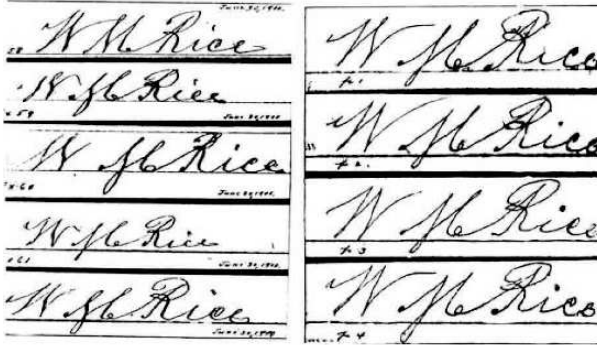 June 30, 1900.
58 W M Rice
W M Rice
59 June 30, 1900
W M Rice
60 June 30, 1900.
W M Rice
61 June 30, 1900.
W M Rice
June 30, 1900
W M Rice
1
W M Rice
2.
W M Rice
3
W M Rice
4